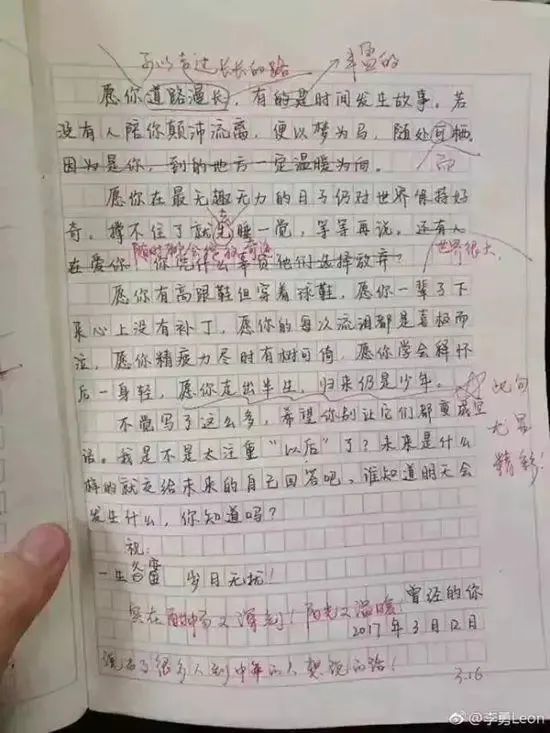 可以走过长长的路 丰富的
愿你道路漫长，有的是时间发生故事。若
没有人陪你颠沛流离，便以梦为马，随处可栖。
因为是你，到的地方一定温暖为向。
而
愿你在最无趣无力的日子仍对世界保持好
奇，撑不住了就先睡一觉，等等再说。还有人
世界很大，
在爱你，你凭什么辜负他们选择放弃？
愿你有高跟鞋但穿着球鞋，愿你一辈子下
来心上没有补丁，愿你的每次流泪都是喜极而
泣，愿你精疲力尽时有树可倚，愿你学会释怀
后一身轻，愿你走出半生，归来仍是少年。
此句
尤显
精彩！
不觉写了这么多，希望你别让它们都变成空
话。我是不是太注重“以后”了？未来是什么
样的就交给未来的自己回答吧，谁知道明天会
发生什么，你知道吗？
祝：
一生 岁月无扰！
曾经的你
实在酣畅又深刻！阳光又温暖
2017年3月12日
说出了很多人到中年的人想说的话！
3.16
@李勇Leon